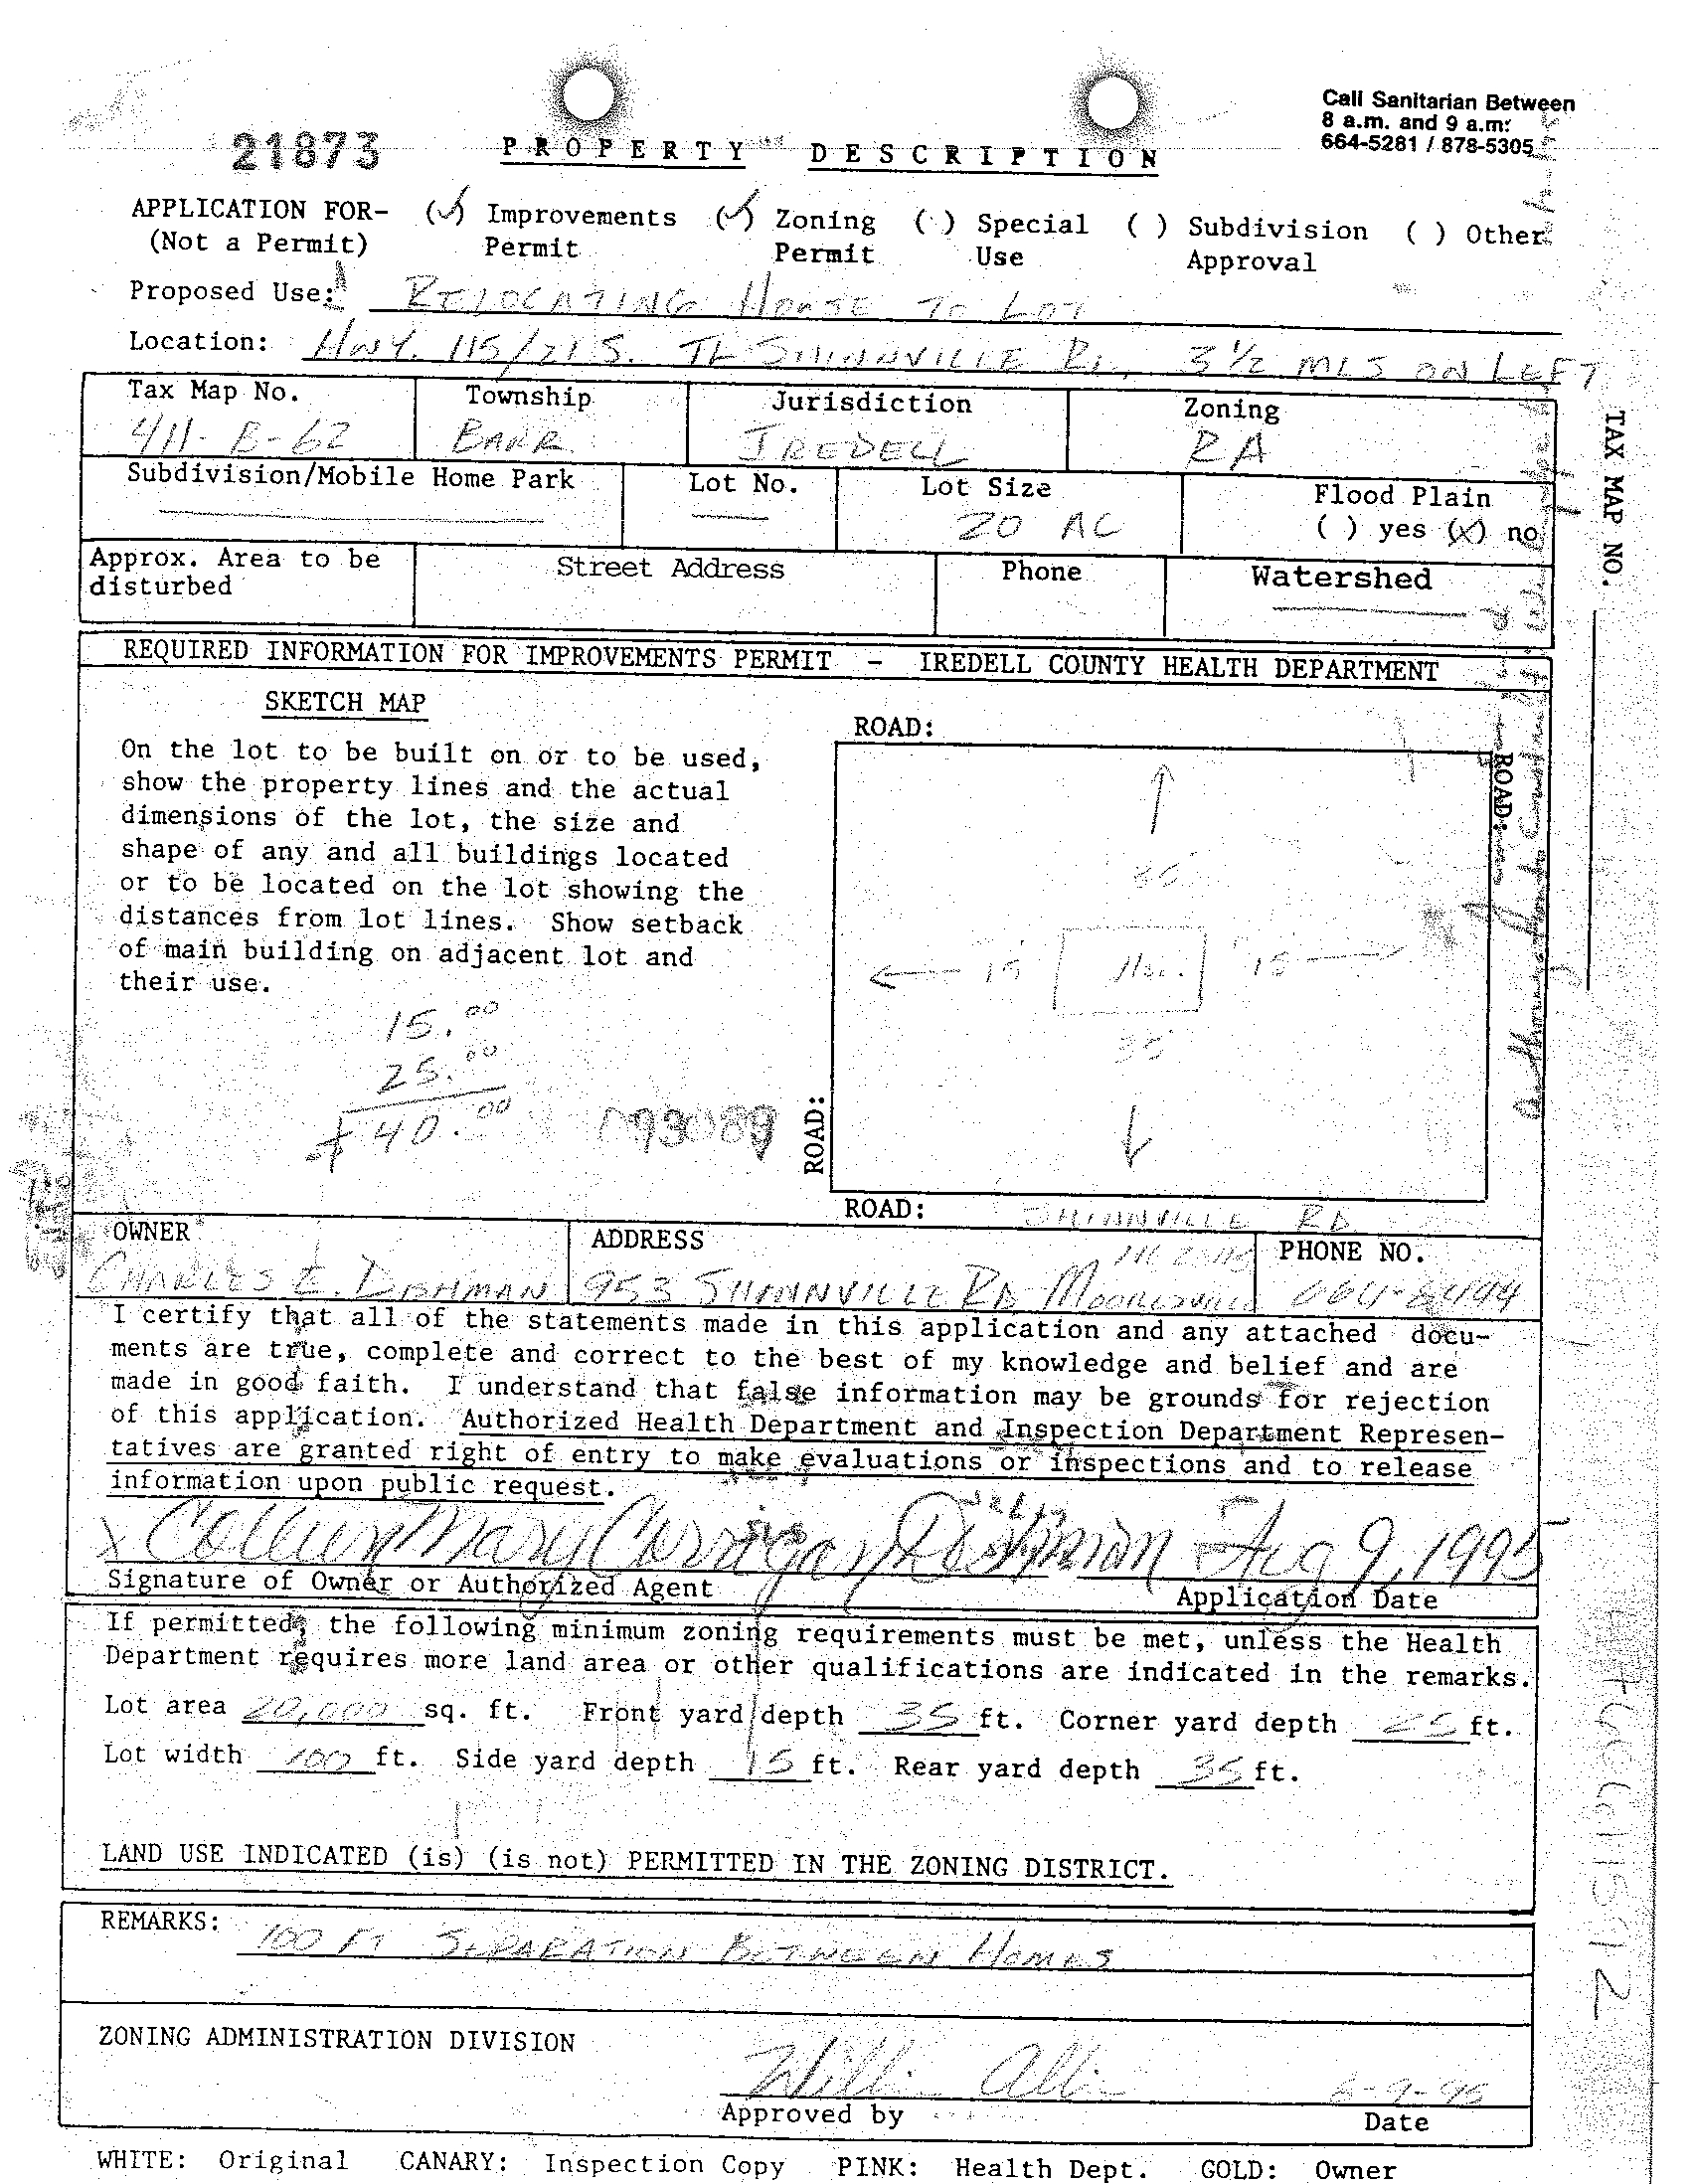 Call Sanitarian Between
8 a.m. and 9 a.m:
664-5281 / 878-5305
21873 PROPERTY DESCRIPTION
APPLICATION FOR- (✓) Improvements (✓) Zoning ( ) Special ( ) Subdivision ( ) Other
(Not a Permit) Permit Permit Use Approval
Proposed Use: RELOCATING HOUSE TO LOT
Location: HWY. 115/21 S. TL SHINNVILLE RD, 3 1/2 MLS ON LEFT
Tax Map No. Township Jurisdiction Zoning
4/11-B-62 BARR. IREDELL RA
Subdivision/Mobile Home Park Lot No. Lot Size Flood Plain
20 AC ( ) yes (x) no
Approx. Area to be Street Address Phone Watershed
disturbed
TAX MAP NO.
REQUIRED INFORMATION FOR IMPROVEMENTS PERMIT - IREDELL COUNTY HEALTH DEPARTMENT
SKETCH MAP
ROAD:
On the lot to be built on or to be used,
show the property lines and the actual
dimensions of the lot, the size and
shape of any and all buildings located
or to be located on the lot showing the
distances from lot lines. Show setback
of main building on adjacent lot and
their use.
ROAD:
35
15 Hse. 15
35
15.00
25.00
40.00
093089
ROAD:
ROAD: SHINNVILLE RD
OWNER ADDRESS PHONE NO.
CHARLES E. DISHMAN 953 SHINNVILLE RD MOORESVILLE 664-8494
I certify that all of the statements made in this application and any attached docu-
ments are true, complete and correct to the best of my knowledge and belief and are
made in good faith. I understand that false information may be grounds for rejection
of this application. Authorized Health Department and Inspection Department Represen-
tatives are granted right of entry to make evaluations or inspections and to release
information upon public request.
X Colleen Mary Corrigan Dishman Aug 9, 1995
Signature of Owner or Authorized Agent Application Date
If permitted, the following minimum zoning requirements must be met, unless the Health
Department requires more land area or other qualifications are indicated in the remarks.
Lot area 20,000 sq. ft. Front yard depth 35 ft. Corner yard depth 25 ft.
Lot width 100 ft. Side yard depth 15 ft. Rear yard depth 35 ft.
LAND USE INDICATED (is) (is not) PERMITTED IN THE ZONING DISTRICT.
REMARKS: 100 FT SEPARATION BETWEEN HOMES
ZONING ADMINISTRATION DIVISION
8-9-95
Approved by Date
WHITE: Original CANARY: Inspection Copy PINK: Health Dept. GOLD: Owner